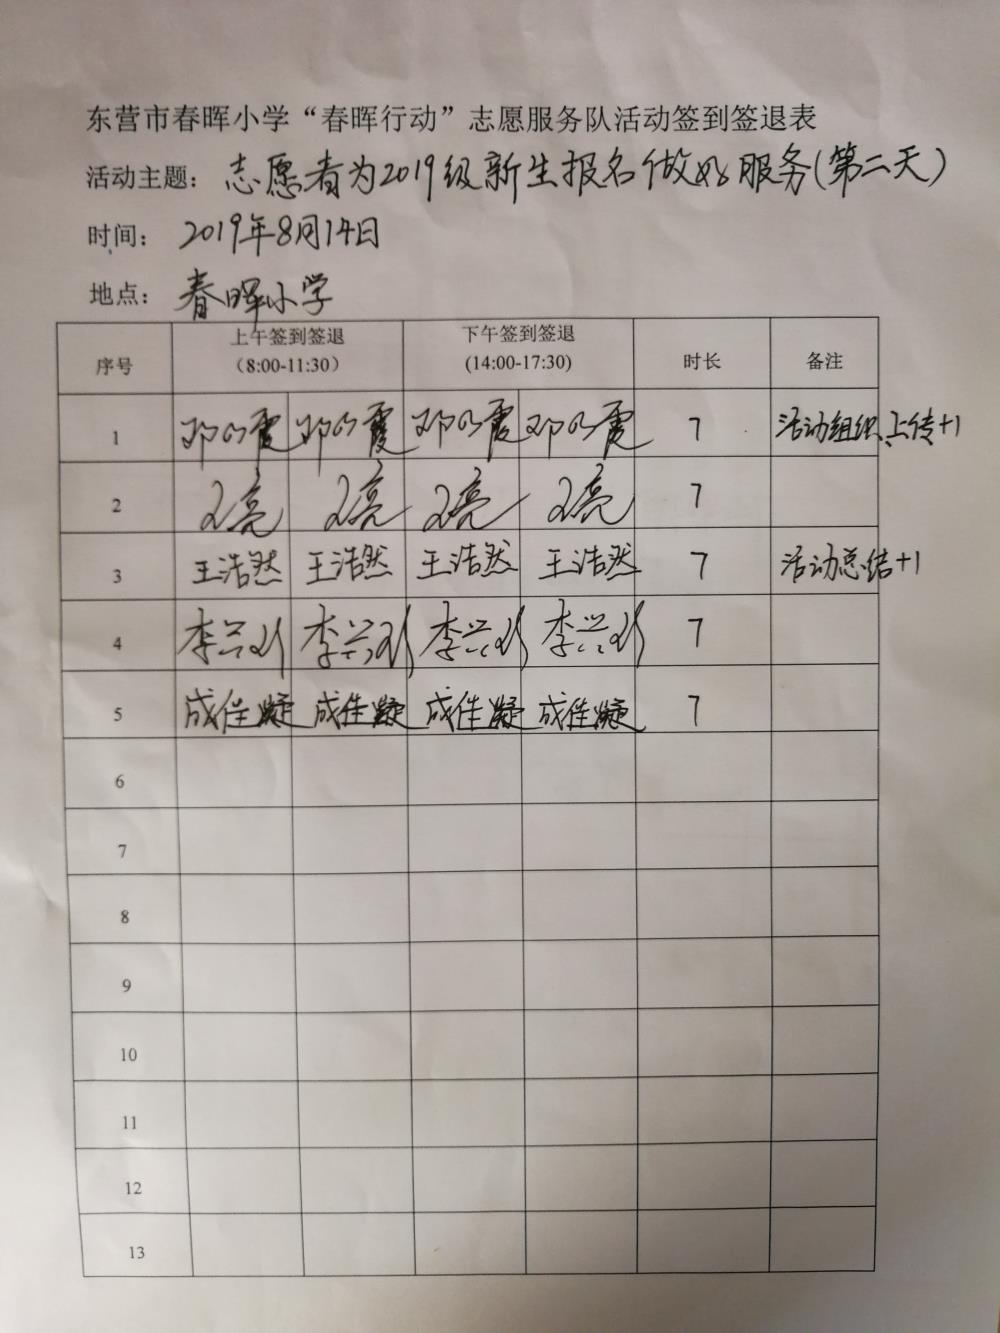 东营市春晖小学“春晖行动”志愿服务队活动签到签退表
活动主题：志愿者为2019级新生报名做好服务(第二天)
时间：2019年8月14日
地点：春晖小学
序号 上午签到签退 (8:00-11:30) 下午签到签退 (14:00-17:30) 时长 备注
1 7 活动组织、上传+1
2 7
3 王浩然 王浩然 王浩然 王浩然 7 活动总结+1
4 7
5 成佳凝 成佳凝 成佳凝 成佳凝 7
6
7
8
9
10
11
12
13